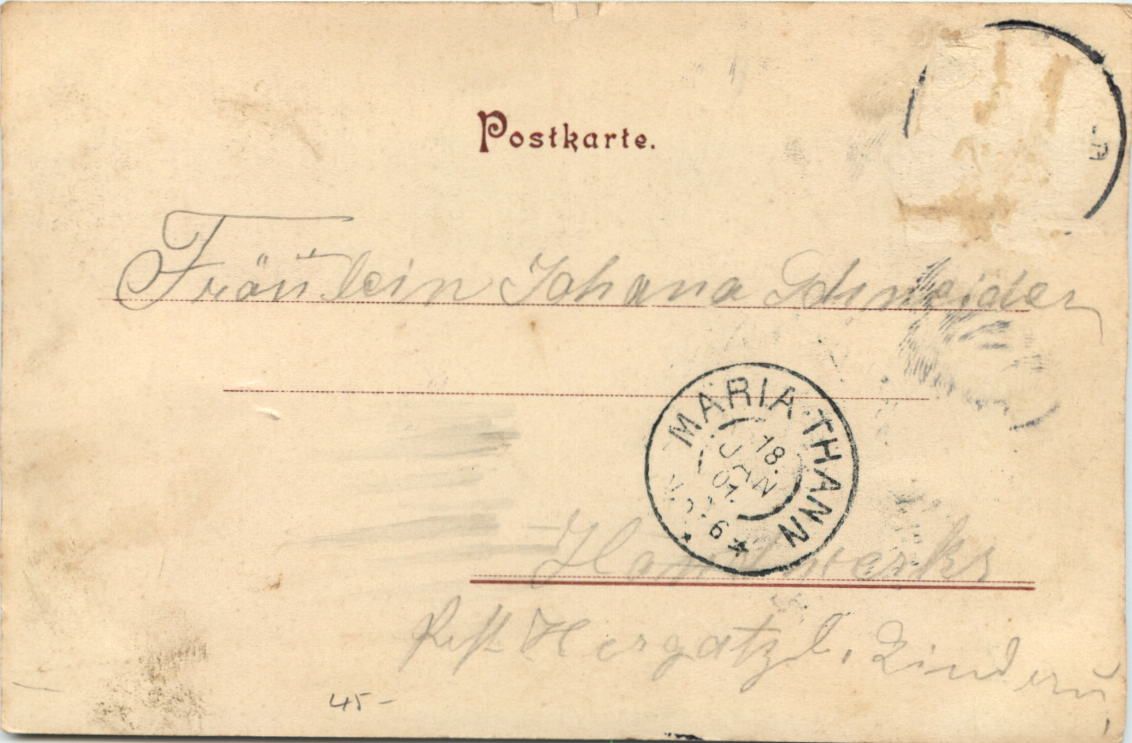 Postkarte.
Fräulein Johana Schneider
MARIA-THANN
18.
JAN
01.
Handwerks
Post Hergatz b. Lindau
45-